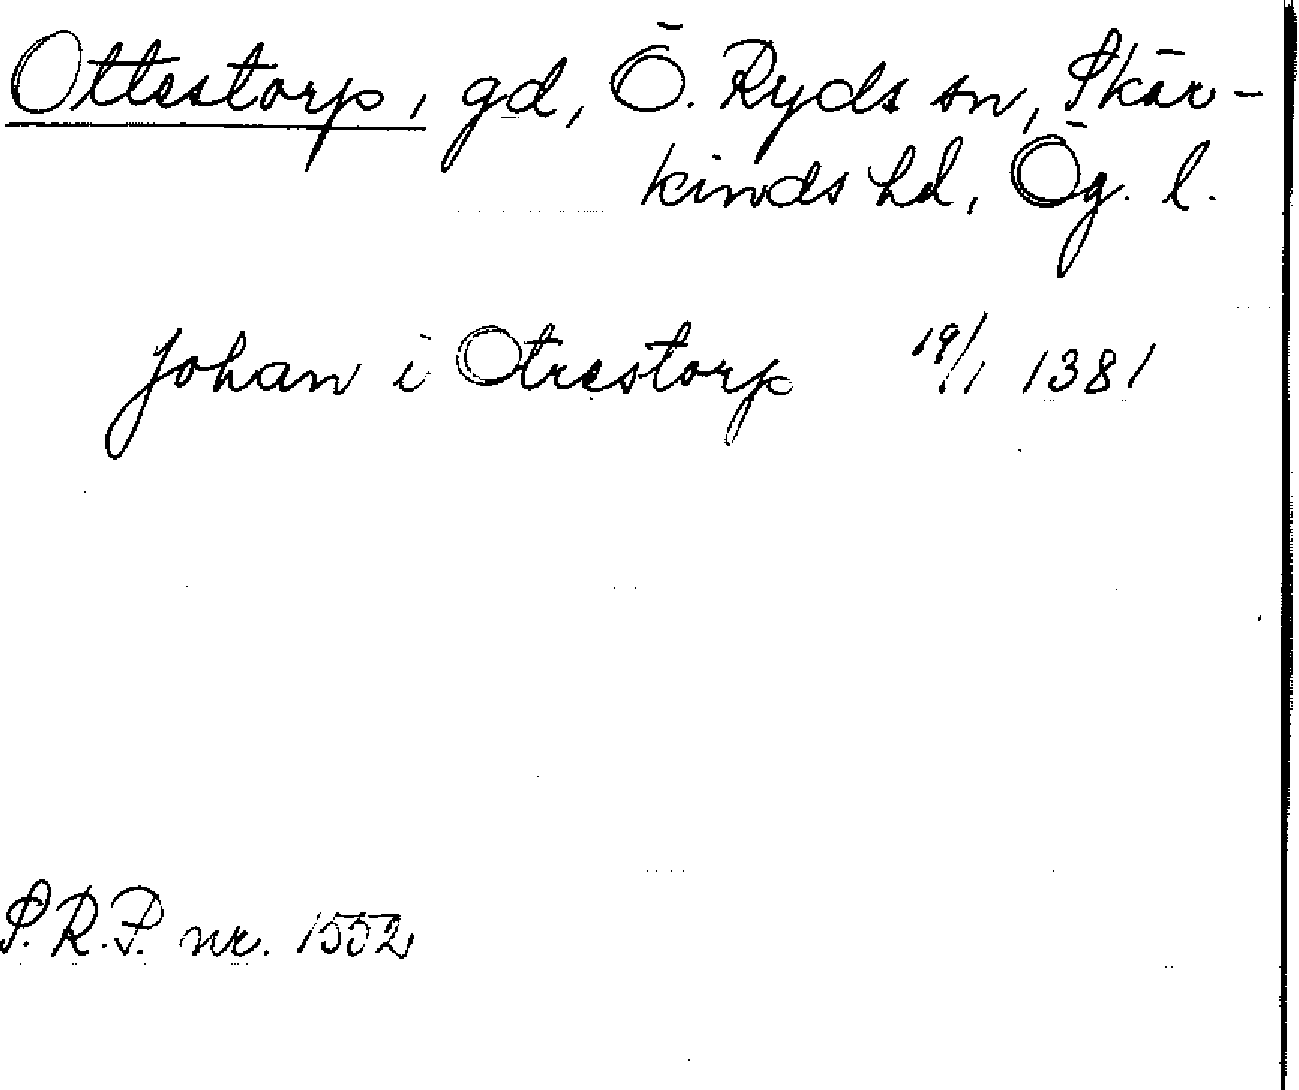 Ottestorp, gd, Ö. Ryds sn, Skär-
kinds hd, Ög. l.
Johan i Otrestorp 19/1 1381
S.R.P. nr. 1552